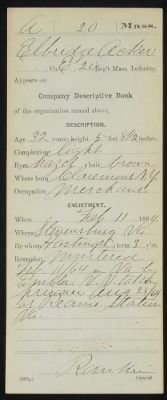 A 20 Mass.
Elbridge Acker
Co. E, 20 Reg't Mass. Infantry.
Appears on
Company Descriptive Book
of the organization named above.
DESCRIPTION.
Age 32 years; height 5 feet 8½ inches.
Complexion Light
Eyes Hazel; hair brown
Where born Claremont N.H.
Occupation Merchant
ENLISTMENT.
When Feb 11, 1864.
Where Stevensburg Va.
By whom term 3 y'rs.
Remarks: Mustered
Feb. 11/64 in Va. by
prisoner Aug 25/64
at Reams Station
Va.
Rankin
Copyist.